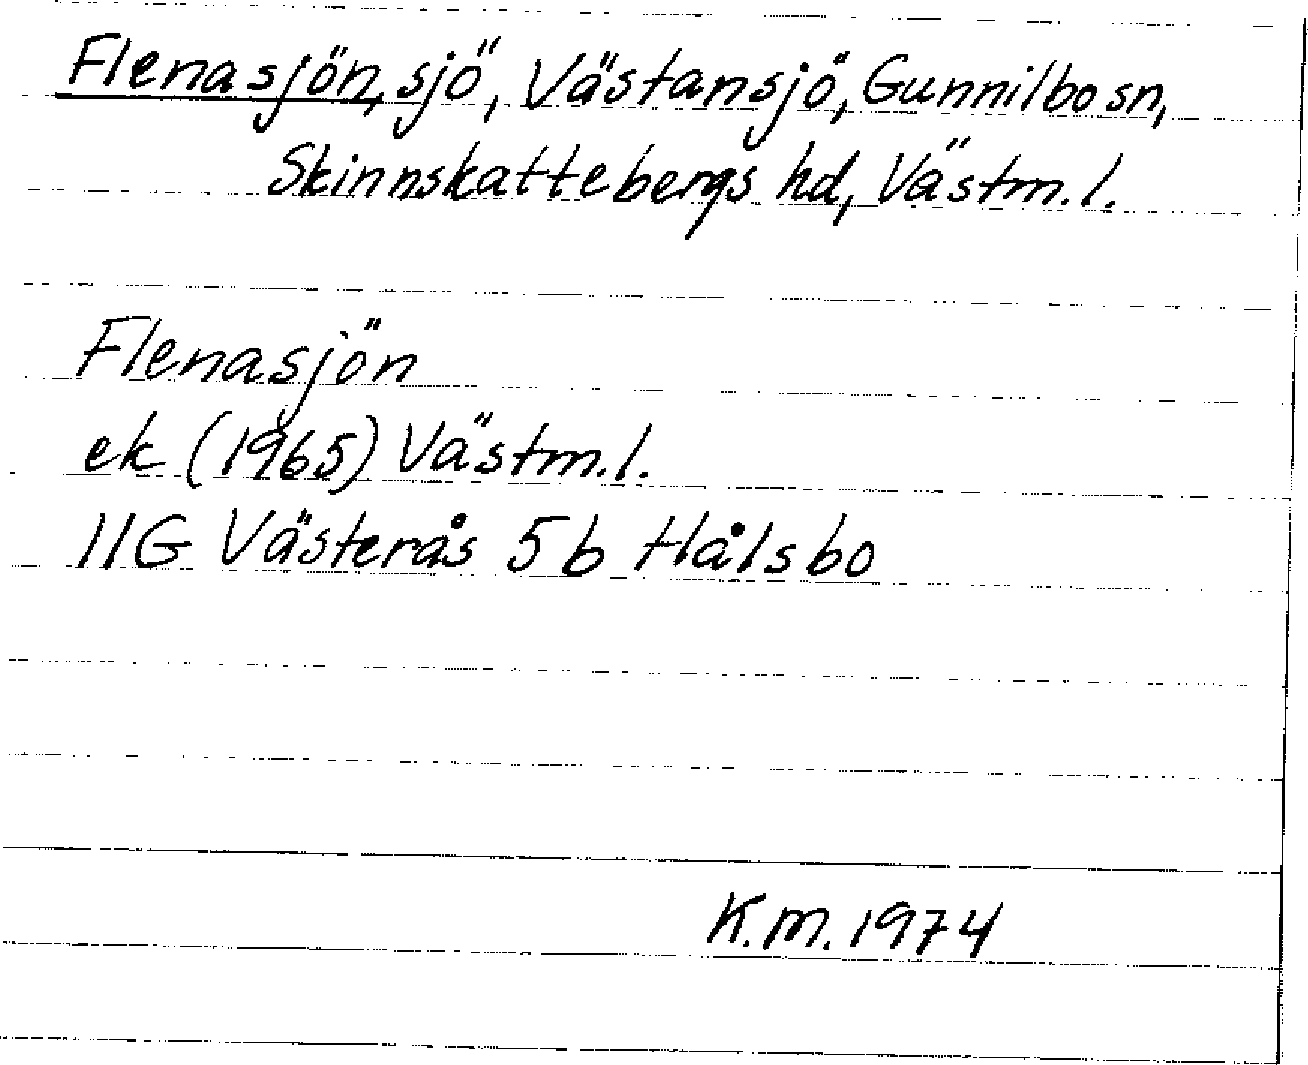 Flenasjön, sjö, Västansjö, Gunnilbo sn,
Skinnskattebergs hd, Västm.l.
Flenasjön
ek (1965) Västm.l.
11G Västerås 5b Hålsbo
K.M. 1974